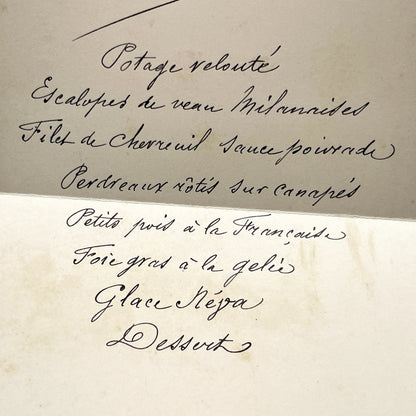 Potage velouté
Escalopes de veau Milanaises
Filet de Chevreuil sauce poivrade
Perdreaux rôtis sur canapés
Petits pois à la Française
Foie gras à la gelée
Glace Néva
Dessert